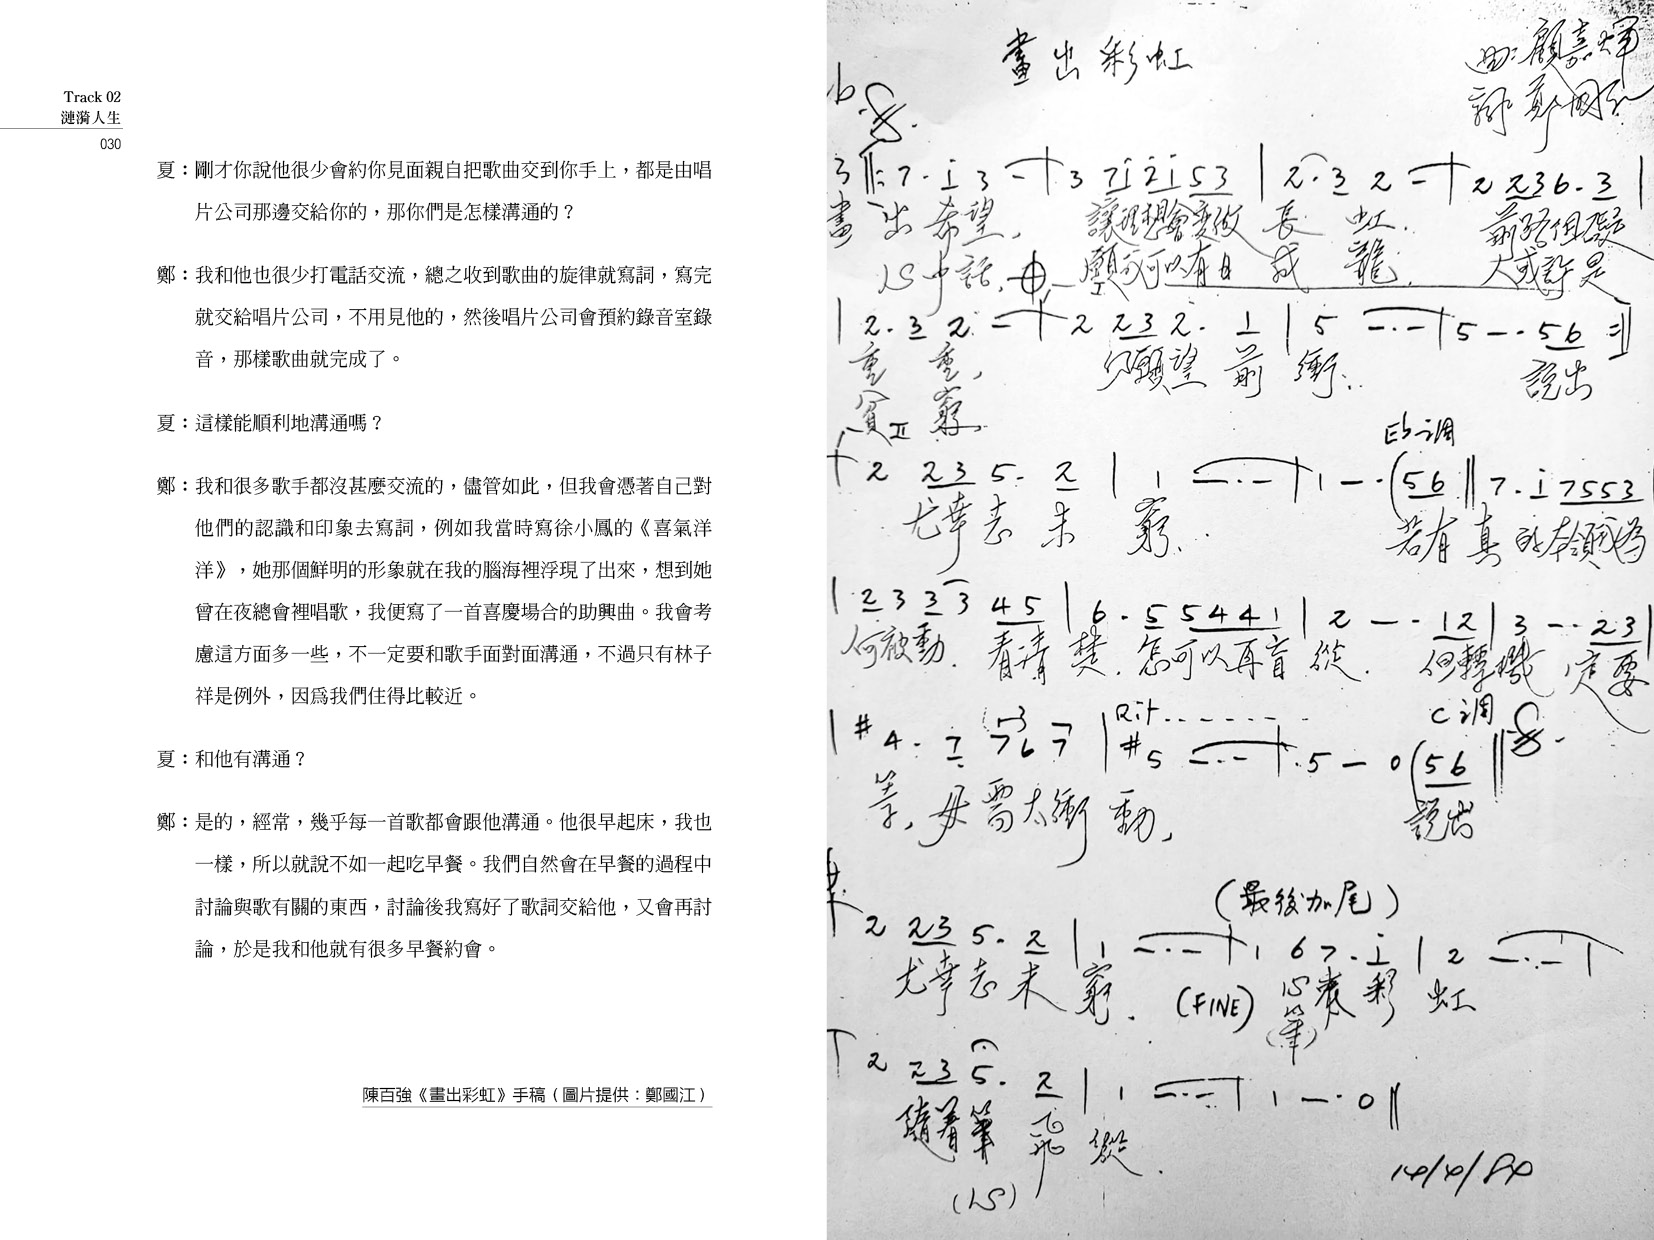 Track 02
漣漪人生
030
夏：剛才你說他很少會約你見面親自把歌曲交到你手上，都是由唱
片公司那邊交給你的，那你們是怎樣溝通的？
鄭：我和他也很少打電話交流，總之收到歌曲的旋律就寫詞，寫完
就交給唱片公司，不用見他的，然後唱片公司會預約錄音室錄
音，那樣歌曲就完成了。
夏：這樣能順利地溝通嗎？
鄭：我和很多歌手都沒甚麼交流的，儘管如此，但我會憑著自己對
他們的認識和印象去寫詞，例如我當時寫徐小鳳的《喜氣洋
洋》，她那個鮮明的形象就在我的腦海裡浮現了出來，想到她
曾在夜總會裡唱歌，我便寫了一首喜慶場合的助興曲。我會考
慮這方面多一些，不一定要和歌手面對面溝通，不過只有林子
祥是例外，因為我們住得比較近。
夏：和他有溝通？
鄭：是的，經常，幾乎每一首歌都會跟他溝通。他很早起床，我也
一樣，所以就說不如一起吃早餐。我們自然會在早餐的過程中
討論與歌有關的東西，討論後我寫好了歌詞交給他，又會再討
論，於是我和他就有很多早餐約會。
陳百強《畫出彩虹》手稿（圖片提供：鄭國江）
畫出彩虹
曲：顧嘉煇
詞 鄭國江
畫出希望，讓理想會變做長虹．前路但礙
心中話，願可以有日成龍．人或許是
重重，只願望前衝． 說出
貧窮，
Eb調
尤幸志未窮． 若有真的本領為
何被動．看清楚．怎可以再盲從．但轉機定要
Rit.......
C調
等，毋需太衝動， 說出
(最後加尾)
尤幸志未窮．(FINE) 心裏彩虹
(筆)
隨着筆飛縱．
(心)
14/4/84